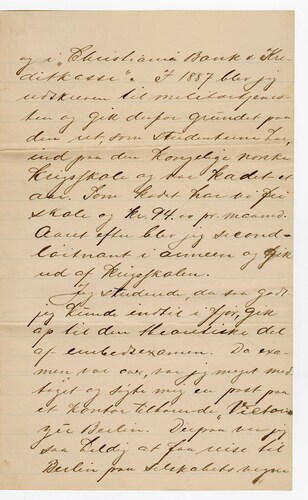 og i "Christiania Bank & Kre-
ditkasse". I 1887 blev jeg
udskreven til militærtjenes-
ten og gik derfor grundet paa
den ret, som studenterne har,
ind paa den Kongelige norske
Krigsskole og var Kadet et
aar. Som kadet har vi fri
skole og Kr. 94.00 pr. maaned.
Aaret efter blev jeg second-
löitnant i armeen og gik
ud af Krigsskolen.
Jeg studerede, da saa godt
jeg kunde indtil i fjor, gik
op til den theoretiske del
af embedsexamen. Da exa-
men var over, var jeg meget med-
taget og søgte mig en post paa
et kontor tilhørende "Victoria
zü Berlin. Derpaa var jeg
saa heldig at faa reise til
Berlin paa selskabets vegne